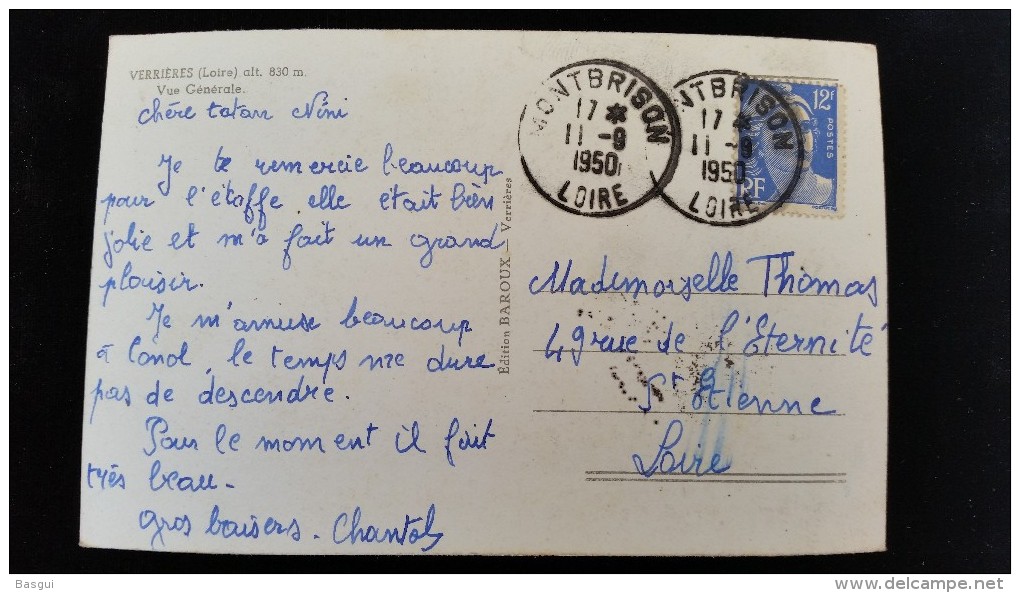 VERRIÈRES (Loire) alt. 830 m.
Vue Générale.
chère tatan Nini
Je te remercie beaucoup
pour l'étoffe elle était bien
jolie et m'a fait un grand
plaisir.
Je m'amuse beaucoup
à Conol, le temps me dure
pas de descendre.
Pour le moment il fait
très beau.
gros baisers. Chantal
Édition BAROUX — Verrières
MONTBRISON
17 *
11 -9
1950
LOIRE
NTBRISON
17 *
11 -9
1950
LOIRE
12F
POSTES
RF
Mademoiselle Thomas
49 rue de l'Eternité
St Etienne
Loire
Basgui
www.delcampe.net